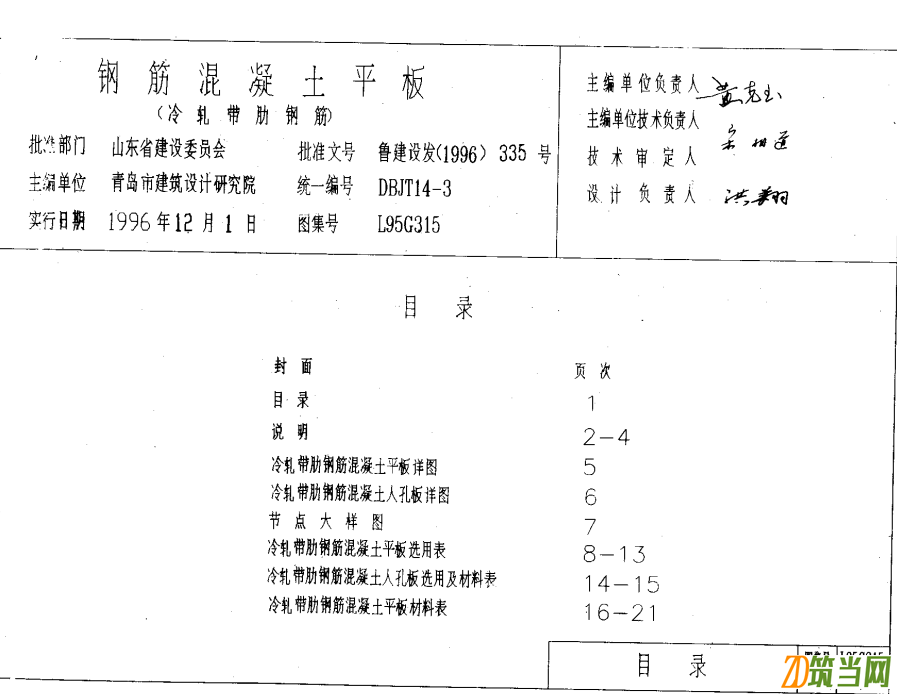 钢筋混凝土平板
(冷轧带肋钢筋)
批准部门 山东省建设委员会 批准文号 鲁建设发(1996) 335 号
主编单位 青岛市建筑设计研究院 统一编号 DBJT14-3
实行日期 1996年12月1日 图集号 L95G315
主编单位负责人
主编单位技术负责人
技术审定人
设计负责人 洪翔
目录
封面 页次
目录 1
说明 2-4
冷轧带肋钢筋混凝土平板详图 5
冷轧带肋钢筋混凝土人孔板详图 6
节点大样图 7
冷轧带肋钢筋混凝土平板选用表 8-13
冷轧带肋钢筋混凝土人孔板选用及材料表 14-15
冷轧带肋钢筋混凝土平板材料表 16-21
目录 图集号 L95G315
筑当网